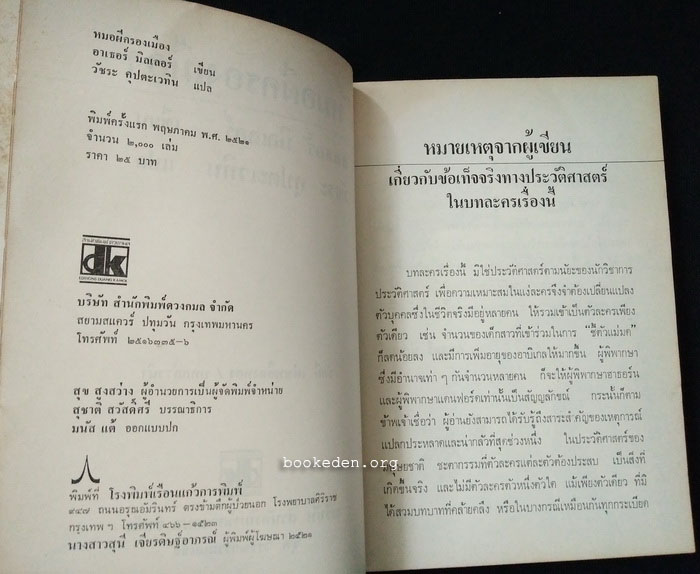 หมอผีครองเมือง
อาเธอร์ มิลเลอร์ เขียน
วัชระ คุปตะเวทิน แปล
พิมพ์ครั้งแรก พฤษภาคม พ.ศ. ๒๕๒๑
จำนวน ๒,๐๐๐ เล่ม
ราคา ๒๕ บาท
dk
บริษัท สำนักพิมพ์ดวงกมล จำกัด
สยามสแควร์ ปทุมวัน กรุงเทพมหานคร
โทรศัพท์ ๒๕๑๖๓๓๕-๖
สุข สูงสว่าง ผู้อำนวยการเป็นผู้จัดพิมพ์จำหน่าย
สุชาติ สวัสดิ์ศรี บรรณาธิการ
มนัส แต้ ออกแบบปก
พิมพ์ที่ โรงพิมพ์เรือนแก้วการพิมพ์
๙๔๗ ถนนอรุณอมรินทร์ ตรงข้ามตึกผู้ป่วยนอก โรงพยาบาลศิริราช
กรุงเทพ ฯ โทรศัพท์ ๔๖๖-๑๕๒๓
นางสาวสุนี เจียรดิษฐ์อาภรณ์ ผู้พิมพ์ผู้โฆษณา ๒๕๒๑
หมายเหตุจากผู้เขียน
เกี่ยวกับข้อเท็จจริงทางประวัติศาสตร์
ในบทละครเรื่องนี้
บทละครเรื่องนี้ มิใช่ประวัติศาสตร์ตามนัยะของนักวิชาการ
ประวัติศาสตร์ เพื่อความเหมาะสมในแง่ละครจึงจำต้องเปลี่ยนแปลง
ตัวบุคคลซึ่งในชีวิตจริงมีอยู่หลายคน ให้รวมเข้าเป็นตัวละครเพียง
ตัวเดียว เช่น จำนวนของเด็กสาวที่เข้าร่วมในการ "ชี้ตัวแม่มด"
ก็ลดน้อยลง และมีการเพิ่มอายุของอาบิเกลให้มากขึ้น ผู้พิพากษา
ซึ่งมีอำนาจเท่า ๆ กันจำนวนหลายคน ก็จะให้ผู้พิพากษาฮาธอร์น
และผู้พิพากษาแดนฟอร์ดเท่านั้นเป็นสัญญลักษณ์ กระนั้นก็ตาม
ข้าพเจ้าเชื่อว่า ผู้อ่านยังสามารถได้รับรู้ถึงสาระสำคัญของเหตุการณ์
แปลกประหลาดและน่ากลัวที่สุดช่วงหนึ่ง ในประวัติศาสตร์ของ
มนุษยชาติ ชะตากรรมที่ตัวละครแต่ละตัวต้องประสบ เป็นสิ่งที่
เกิดขึ้นจริง และไม่มีตัวละครตัวหนึ่งตัวใด แม้เพียงตัวเดียว ที่มิ
ได้สวมบทบาทที่คล้ายคลึง หรือในบางกรณีเหมือนกันทุกกระเบียด
bookeden.org